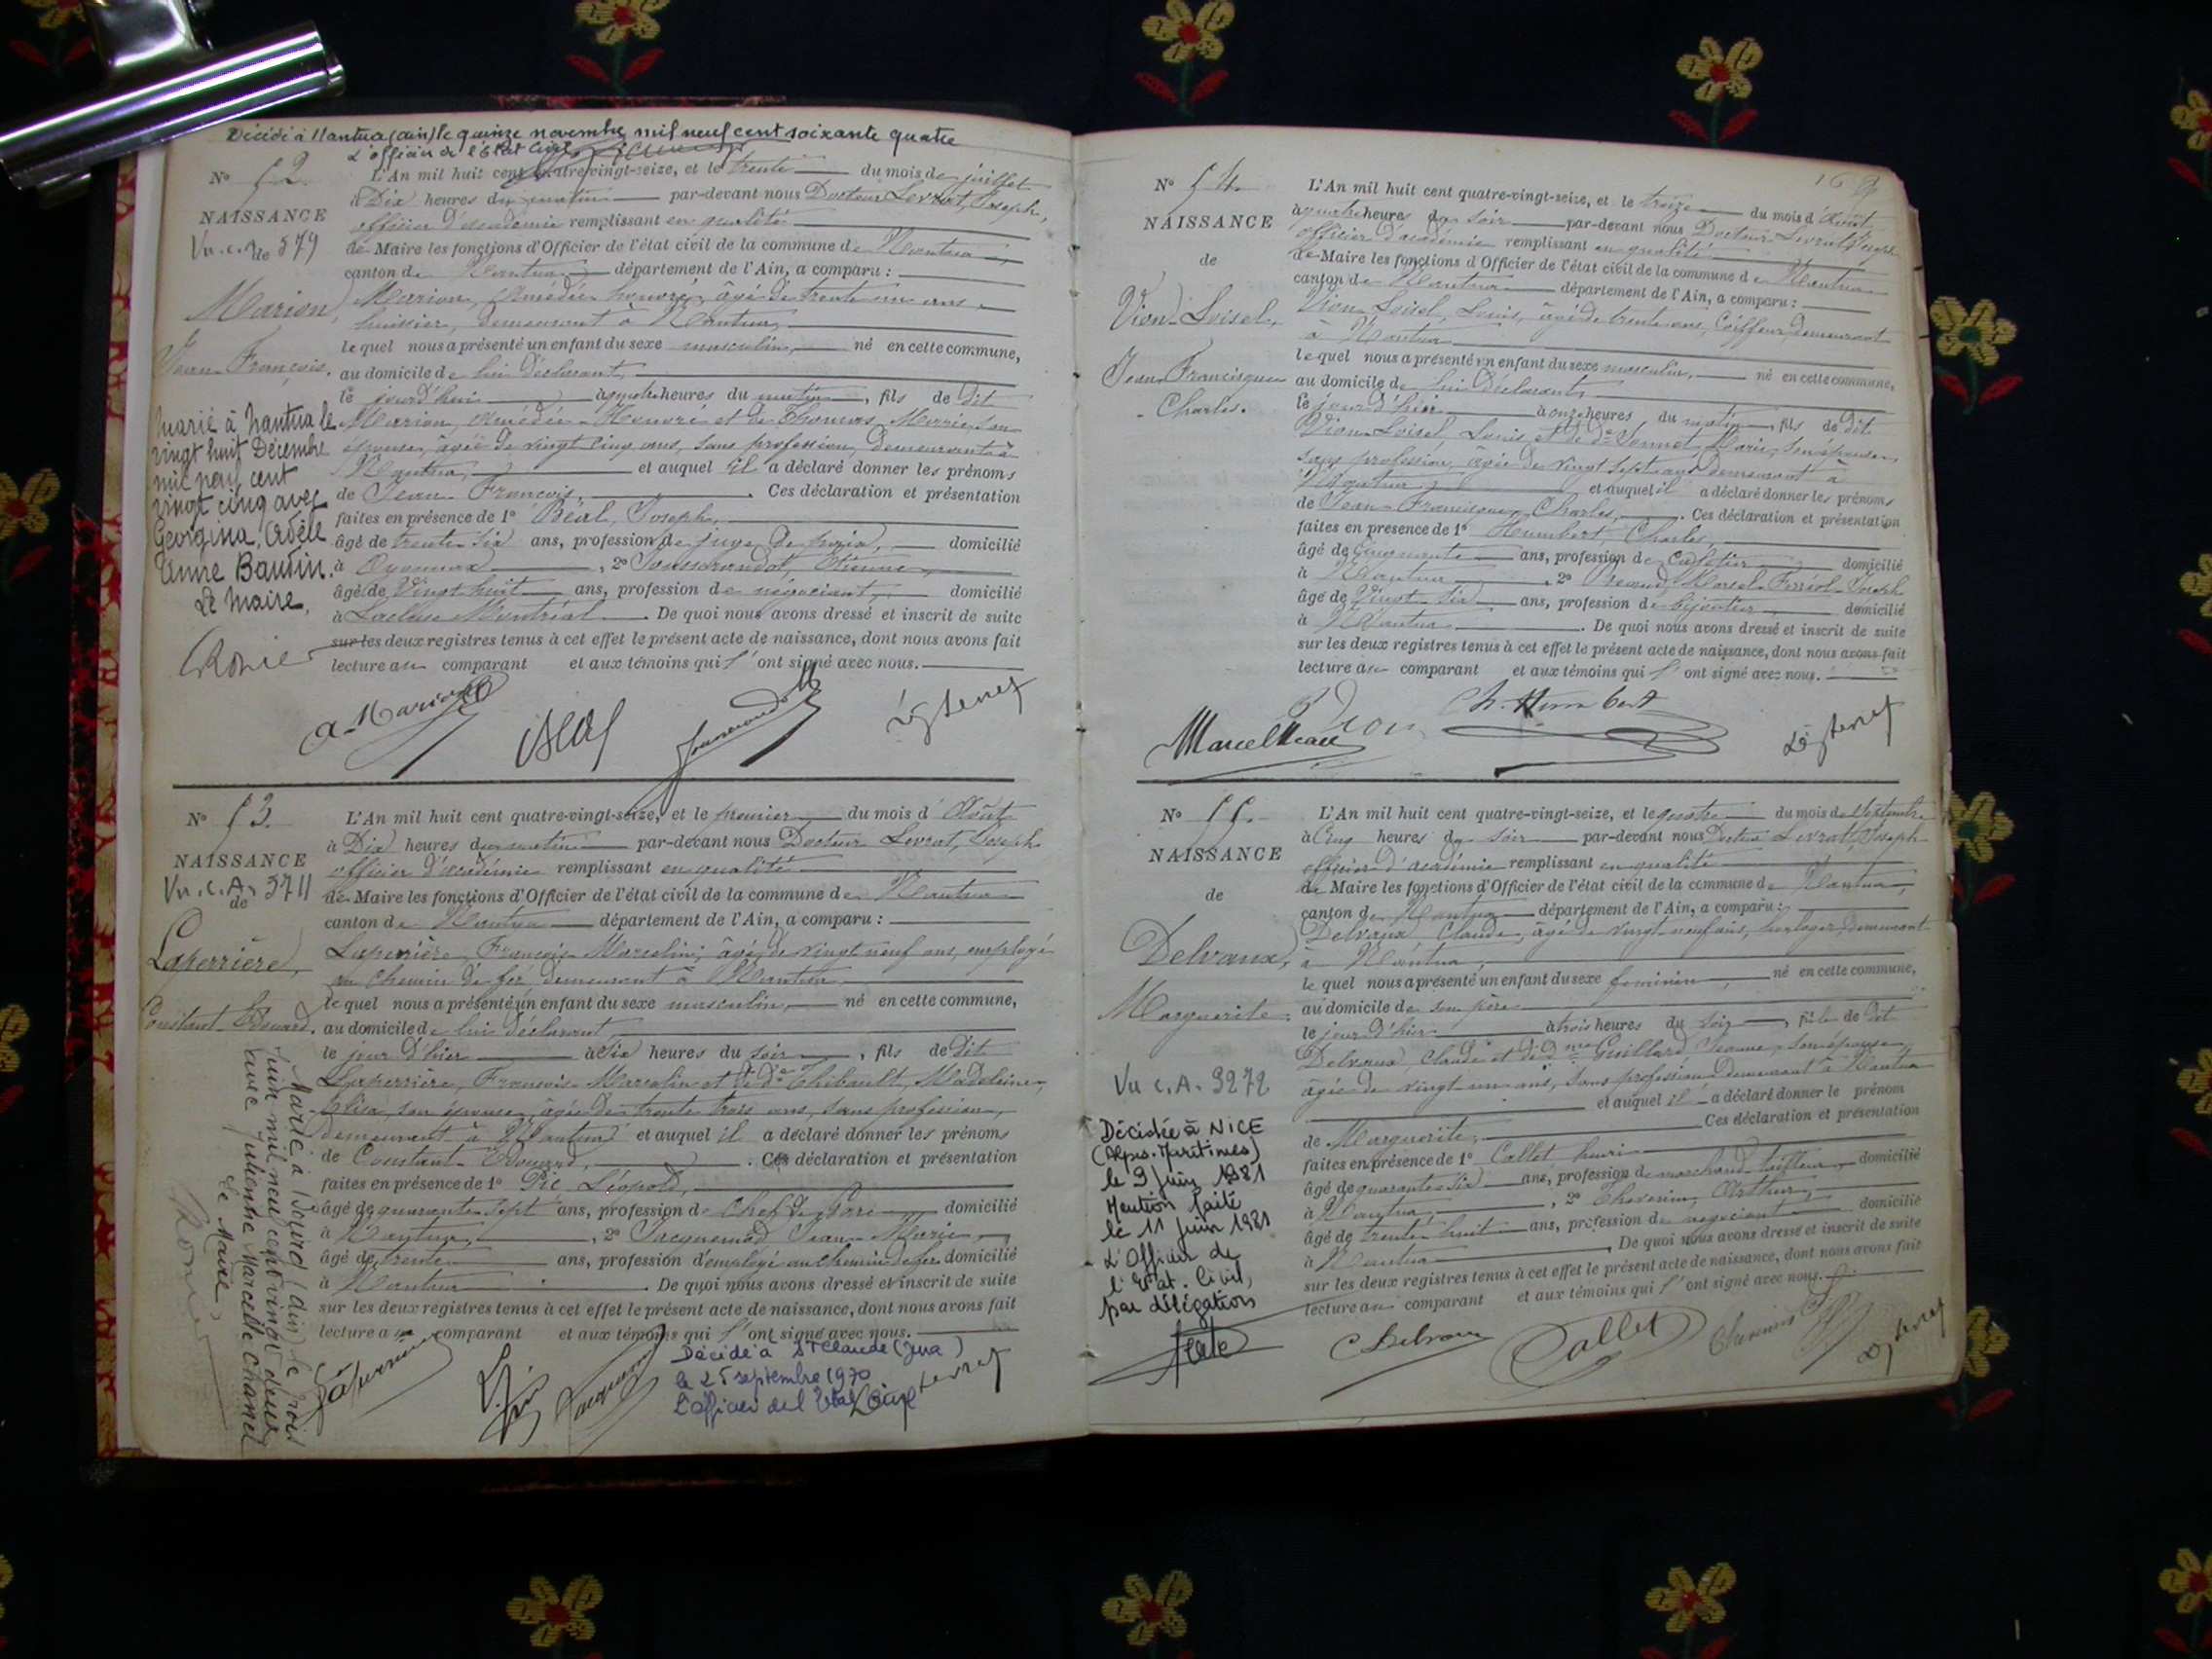 Décédé à Nantua (ain) le quinze novembre mil neuf cent soixante quatre
L'officier de l'Etat Civil
N° 52.
NAISSANCE
Vu. c. A. 579
de
Marion,
Jean-François.
Marié à Nantua le
vingt huit Décembre
mil neuf cent
vingt cinq avec
Georgina, Adèle
Anne Baudin.
Le Maire,
L'An mil huit cent quatre-vingt-seize, et le trente du mois de juillet
à Dix heures du matin par-devant nous Docteur Levrat, Joseph,
officier d'académie remplissant en qualité
de Maire les fonctions d'Officier de l'état civil de la commune de Nantua,
canton de Nantua département de l'Ain, a comparu :
Marion, Amédée honoré, âgé de trente un ans,
huissier, demeurant à Nantua,
lequel nous a présenté un enfant du sexe masculin, né en cette commune,
au domicile de lui déclarant,
le jourd'hui à quatre heures du matin, fils de dit
Marion, Amédée-Honoré et de Thomas, Marie, son
épouse, âgée de vingt cinq ans, sans profession, demeurant à
Nantua, et auquel il a déclaré donner les prénoms
de Jean-François. Ces déclaration et présentation
faites en présence de 1° Béal, Joseph,
âgé de trente-six ans, profession de juge de paix, domicilié
à Oyonnax, 2° Etienne,
âgé de Vingt huit ans, profession de négociant, domicilié
à Montréal. De quoi nous avons dressé et inscrit de suite
sur les deux registres tenus à cet effet le présent acte de naissance, dont nous avons fait
lecture au comparant et aux témoins qui l'ont signé avec nous.
A. Marion
N° 53.
NAISSANCE
Vu. C. A. 5711
de
Laperrière,
Constant-Edouard.
Marié à (ain) le trois
juin mil neuf cent vingt deux
avec Julienne Marcelle Chanel
Le Maire,
L'An mil huit cent quatre-vingt-seize, et le premier du mois d'Août
à Dix heures du matin par-devant nous Docteur Levrat, Joseph
officier d'académie remplissant en qualité
de Maire les fonctions d'Officier de l'état civil de la commune de Nantua
canton de Nantua département de l'Ain, a comparu :
Laperrière, François Marcelin, âgé de vingt neuf ans, employé
au Chemin de fer demeurant à Nantua
lequel nous a présenté un enfant du sexe masculin, né en cette commune,
au domicile de lui déclarant
le jour d'hier à six heures du soir, fils de dit
Laperrière, François-Marcelin et de de Thibault, Madeleine,
Elisa, son épouse, âgée de trente trois ans, sans profession,
demeurant à Nantua et auquel il a déclaré donner les prénoms
de Constant-Edouard, Ces déclaration et présentation
faites en présence de 1° Pic Léopold,
âgé de quarante-sept ans, profession de Chef de Gare domicilié
à Nantua, 2° Jacquemod Jean-Marie,
âgé de trente ans, profession d'employé au chemin de fer domicilié
à Nantua. De quoi nous avons dressé et inscrit de suite
sur les deux registres tenus à cet effet le présent acte de naissance, dont nous avons fait
lecture au comparant et aux témoins qui l'ont signé avec nous.
Laperrière
Décédé à St Claude (Jura)
le 25 septembre 1970
L'officier de l'Etat Civil
N° 54.
NAISSANCE
de
Vion-Loisel,
Jean-Francisque
-Charles.
L'An mil huit cent quatre-vingt-seize, et le treize du mois d'Août
à quatre heures du soir par-devant nous Docteur Levrat, Joseph
officier d'académie remplissant en qualité
de Maire les fonctions d'Officier de l'état civil de la commune de Nantua
canton de Nantua département de l'Ain, a comparu :
Vion-Loisel, Louis, âgé de trente ans, Coiffeur, demeurant
à Nantua
lequel nous a présenté un enfant du sexe masculin, né en cette commune,
au domicile de lui déclarant,
le jour d'hier à onze heures du matin, fils de dit
Vion-Loisel, Louis et de de Marie, son épouse,
sans profession, âgée de vingt sept ans demeurant à
Nantua, et auquel il a déclaré donner les prénoms
de Jean-Francisque-Charles. Ces déclaration et présentation
faites en présence de 1° Humbert Charles,
âgé de Cinquante ans, profession de domicilié
à Nantua, 2° Marcel-Joseph
âgé de Vingt-six ans, profession de bijoutier domicilié
à Nantua. De quoi nous avons dressé et inscrit de suite
sur les deux registres tenus à cet effet le présent acte de naissance, dont nous avons fait
lecture au comparant et aux témoins qui l'ont signé avec nous.
Vion
Ch. Humbert
N° 55.
NAISSANCE
de
Delvaux,
Marguerite.
Vu C.A. 3272
Décédée à NICE
(Alpes-Maritimes)
le 9 Juin 1981
Mention faite
le 11 Juin 1981
L'Officier de
l'Etat-Civil,
par délégation
L'An mil huit cent quatre-vingt-seize, et le quatre du mois de Septembre
à Cinq heures du soir par-devant nous Docteur Levrat, Joseph
officier d'académie remplissant en qualité
de Maire les fonctions d'Officier de l'état civil de la commune de Nantua,
canton de Nantua département de l'Ain, a comparu :
Delvaux Claude, âgé de vingt-neuf ans, horloger, demeurant
à Nantua,
lequel nous a présenté un enfant du sexe féminin, né en cette commune,
au domicile de son père
le jour d'hier à trois heures du soir, fille de dit
Delvaux, Claude et de dme Guillard Jeanne, son épouse,
âgée de vingt un ans, sans profession demeurant à Nantua
et auquel il a déclaré donner le prénom
de Marguerite. Ces déclaration et présentation
faites en présence de 1° Collet henri
âgé de quarante-six ans, profession de marchand-tailleur, domicilié
à Nantua, 2° Thevenin, Arthur,
âgé de trente huit ans, profession de négociant domicilié
à Nantua. De quoi nous avons dressé et inscrit de suite
sur les deux registres tenus à cet effet le présent acte de naissance, dont nous avons fait
lecture au comparant et aux témoins qui l'ont signé avec nous.
C Delvaux
Collet
Thevenin